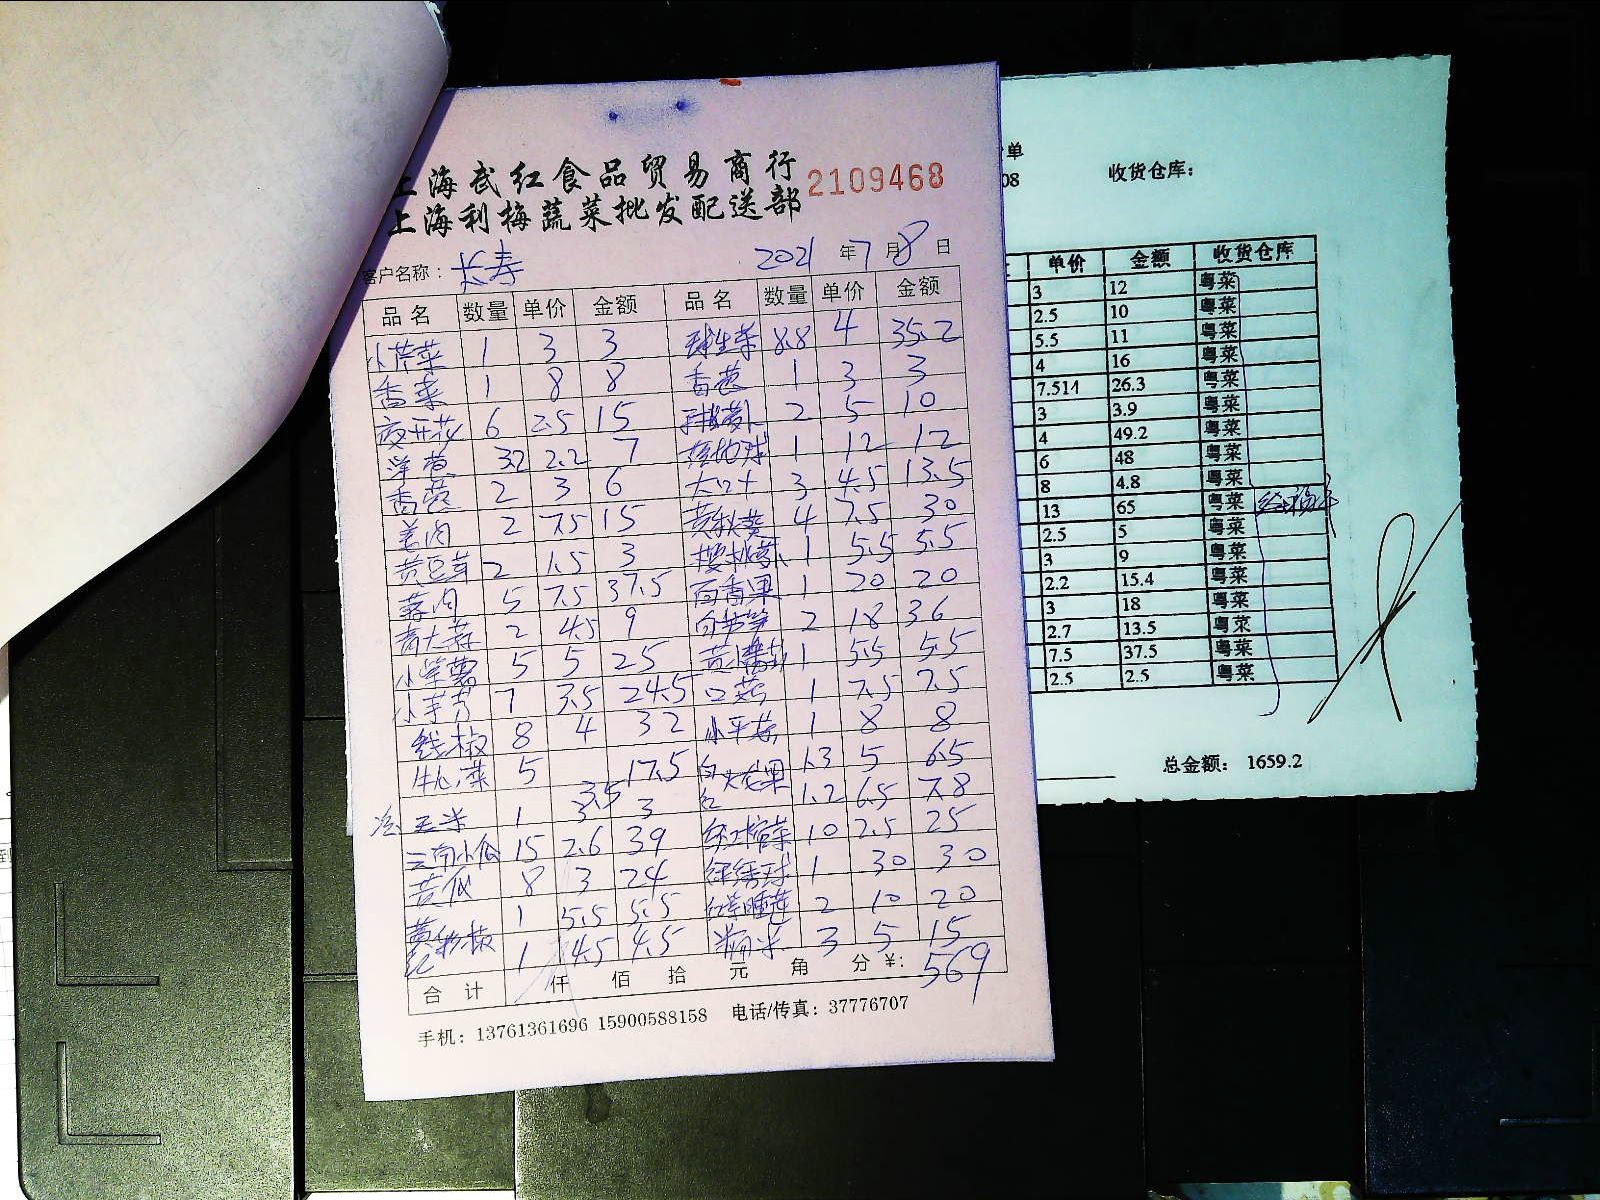 上海武红食品贸易商行
上海利梅蔬菜批发配送部
2109468
客户名称：长寿 2021年7月8日
品名 数量 单价 金额 品名 数量 单价 金额
小芹菜 1 3 3 球生菜 8.8 4 35.2
香菜 1 8 8 香葱 1 3 3
夜开花 6 2.5 15 2 5 10
洋葱 3.2 2.2 7 1 12 12
香葱 2 3 6 大口十 3 4.5 13.5
姜肉 2 7.5 15 黄秋葵 4 7.5 30
黄豆芽 2 1.5 3 樱桃萝卜 1 5.5 5.5
蒜肉 5 7.5 37.5 百香果 1 20 20
青大蒜 2 4.5 9 2 18 36
小紫薯 5 5 25 1 5.5 5.5
小芋艿 7 3.5 24.5 口菇 1 7.5 7.5
线椒 8 4 32 小平菇 1 8 8
牛心菜 5 3.5 17.5 白火龙果 1.3 5 6.5
玉米 1 3 3 红 1.2 6.5 7.8
云南小瓜 15 2.6 39 10 2.5 25
黄瓜 8 3 24 1 30 30
黄彩椒 1 5.5 5.5 2 10 20
红 1 4.5 4.5 3 5 15
合计 仟 佰 拾 元 角 分 ￥：569
手机：13761361696 15900588158 电话/传真：37776707
单
08 收货仓库：
单价 金额 收货仓库
3 12 粤菜
2.5 10 粤菜
5.5 11 粤菜
4 16 粤菜
7.514 26.3 粤菜
3 3.9 粤菜
4 49.2 粤菜
6 48 粤菜
8 4.8 粤菜
13 65 粤菜
2.5 5 粤菜
3 9 粤菜
2.2 15.4 粤菜
3 18 粤菜
2.7 13.5 粤菜
7.5 37.5 粤菜
2.5 2.5 粤菜
总金额： 1659.2